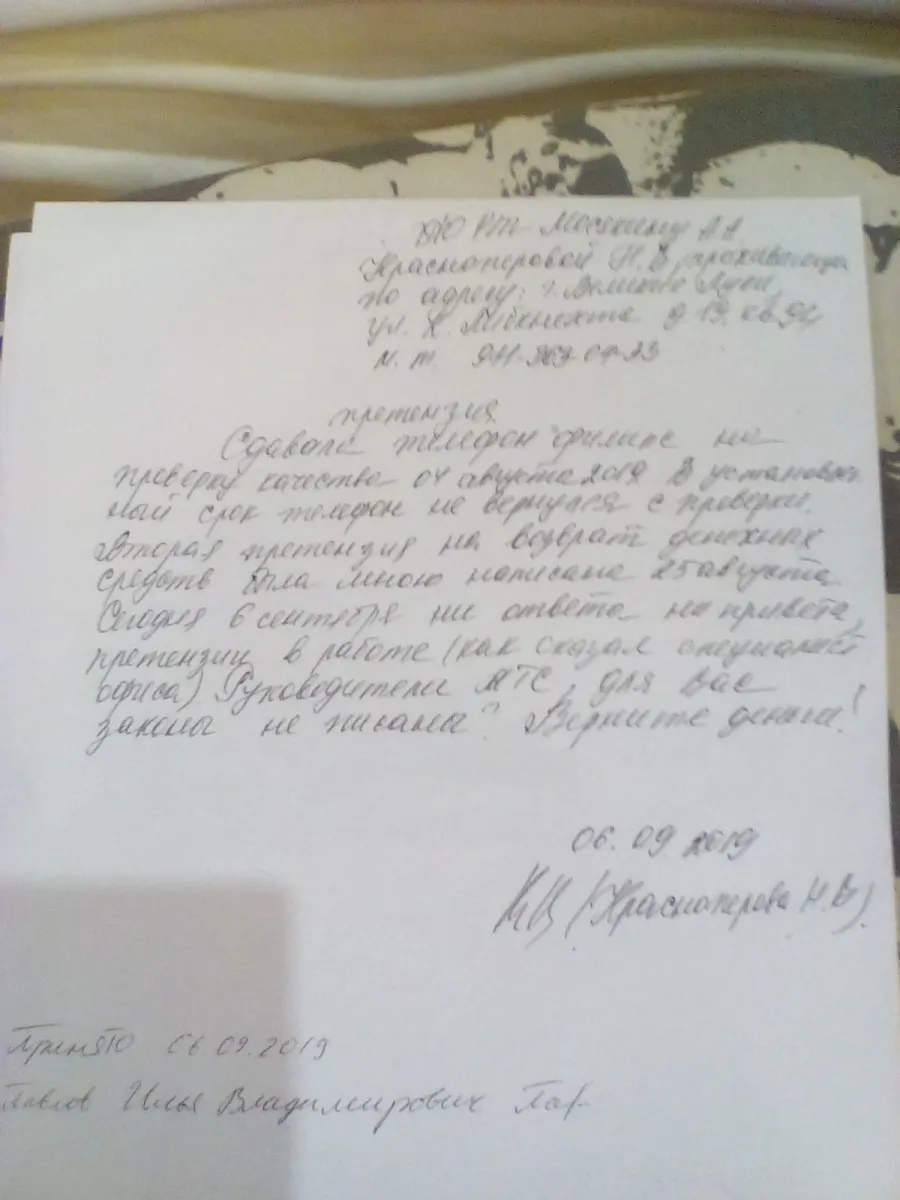 Мосякину АА
Красноперовой Н.В проживающ
по адресу: г. Великие Луки,
ул. К. Либкнехта д 19. кв. 94
м. т.
претензия
Сдавала телефон филипс на
проверку качества 04 августа 2019 В установлен
ный срок телефон не вернулся с проверки.
Вторая претензия на возврат денежных
средств была мною написана 25 августа
Сегодня 6 сентября ни ответа ни привета,
претензии в работе (как сказал специалист
офиса) Руководители МТС, для вас
законы не писаны? Верните деньги!
06. 09 2019
(Красноперова Н.В).
Принято 06 09.2019
Павлов Илья Владимирович